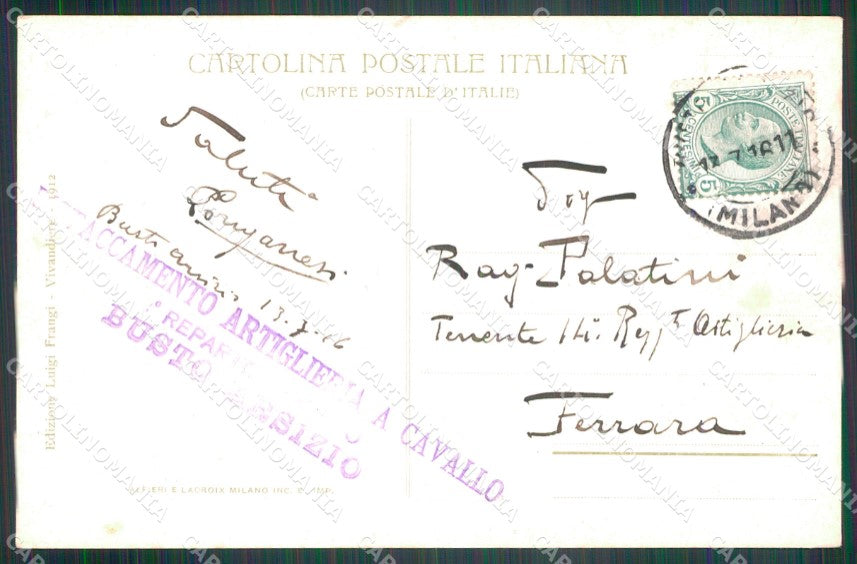 CARTOLINA POSTALE ITALIANA
(CARTE POSTALE D'ITALIE)
Saluti
Busto Arsizio 13-7-16
ACCAMENTO ARTIGLIERIA A CAVALLO
REPARTO
BUSTO ARSIZIO
Edizione Luigi Fraugi - Vivandiere - 1912
ALFIERI E LACROIX MILANO INC. E IMP.
POSTE ITALIANE
CENTESIMI 5
5
13.7.16 11
(MILANO)
Rag. Palatini
Tenente 14. Regg.t Artiglieria
Ferrara
CARTOLINOMANIA